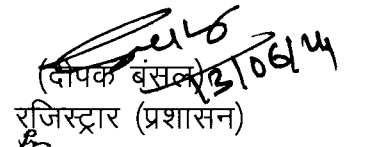 13/06/24
(दीपक बंसल)
रजिस्ट्रार (प्रशासन)